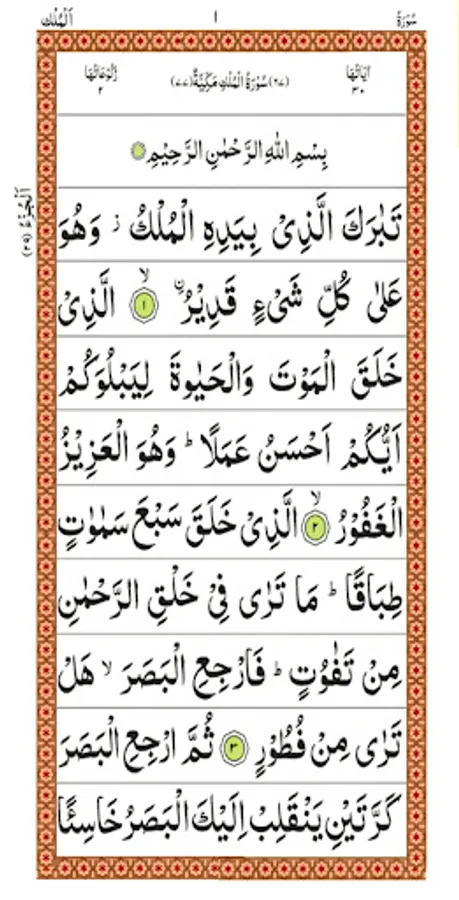 سُورَةُ ١ اَلْمُلْكِ
اٰيَاتُهَا ٣٠ (٦٧) سُوْرَةُ الْمُلْكِ مَكِّيَّةٌ (٧٧) رُكُوْعَاتُهَا ٢
بِسْمِ اللهِ الرَّحْمٰنِ الرَّحِيْمِ
اَلْجُزْءُ (٢٩)
تَبٰرَكَ الَّذِىْ بِيَدِهِ الْمُلْكُ ز وَهُوَ
عَلٰى كُلِّ شَىْءٍ قَدِيْرُ ۨ ۙ ١ الَّذِىْ
خَلَقَ الْمَوْتَ وَالْحَيٰوةَ لِيَبْلُوَكُمْ
اَيُّكُمْ اَحْسَنُ عَمَلًا ؕ وَهُوَ الْعَزِيْزُ
الْغَفُوْرُ ۙ ٢ الَّذِىْ خَلَقَ سَبْعَ سَمٰوٰتٍ
طِبَاقًا ؕ مَا تَرٰى فِىْ خَلْقِ الرَّحْمٰنِ
مِنْ تَفٰوُتٍ ؕ فَارْجِعِ الْبَصَرَ ۙ هَلْ
تَرٰى مِنْ فُطُوْرٍ ٣ ثُمَّ ارْجِعِ الْبَصَرَ
كَرَّتَيْنِ يَنْقَلِبْ اِلَيْكَ الْبَصَرُ خَاسِئًا